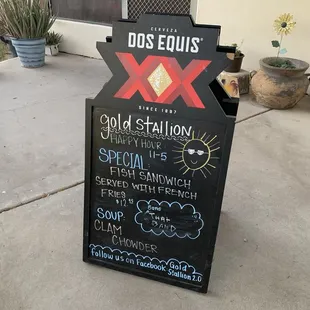 CERVEZA
DOS EQUIS
XX
SINCE 1897
gold Stallion
HAPPY HOUR
11-5
SPECIAL
FISH SANDWICH
SERVED WITH FRENCH
FRIES $12
SOUP
CLAM
CHOWDER
THAT
BAND
Follow us on Facebook Gold
Stallion 2.0